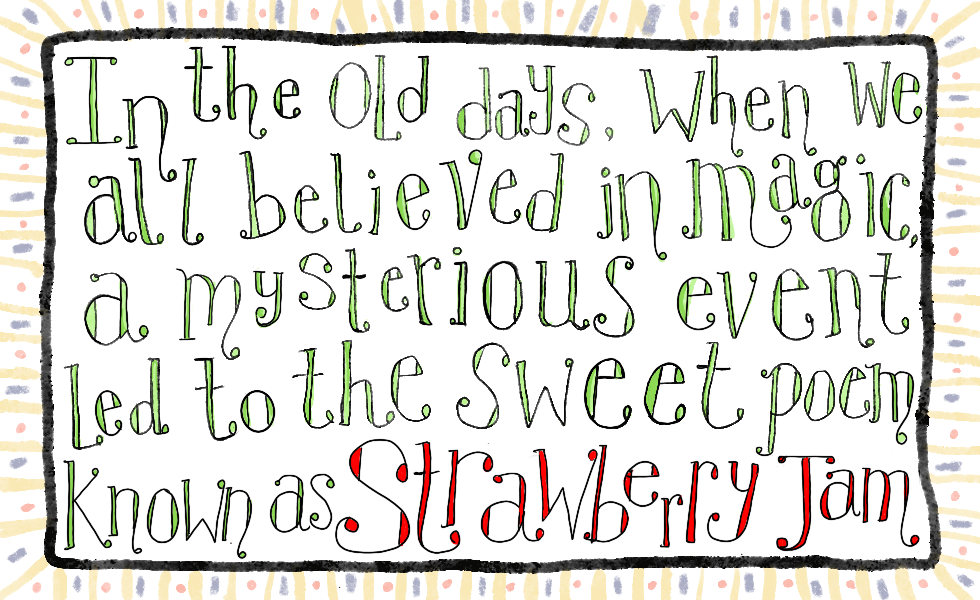 In the Old days, When we
all believed in magic,
a mysterious event
led to the Sweet poem
Known as Strawberry Jam.